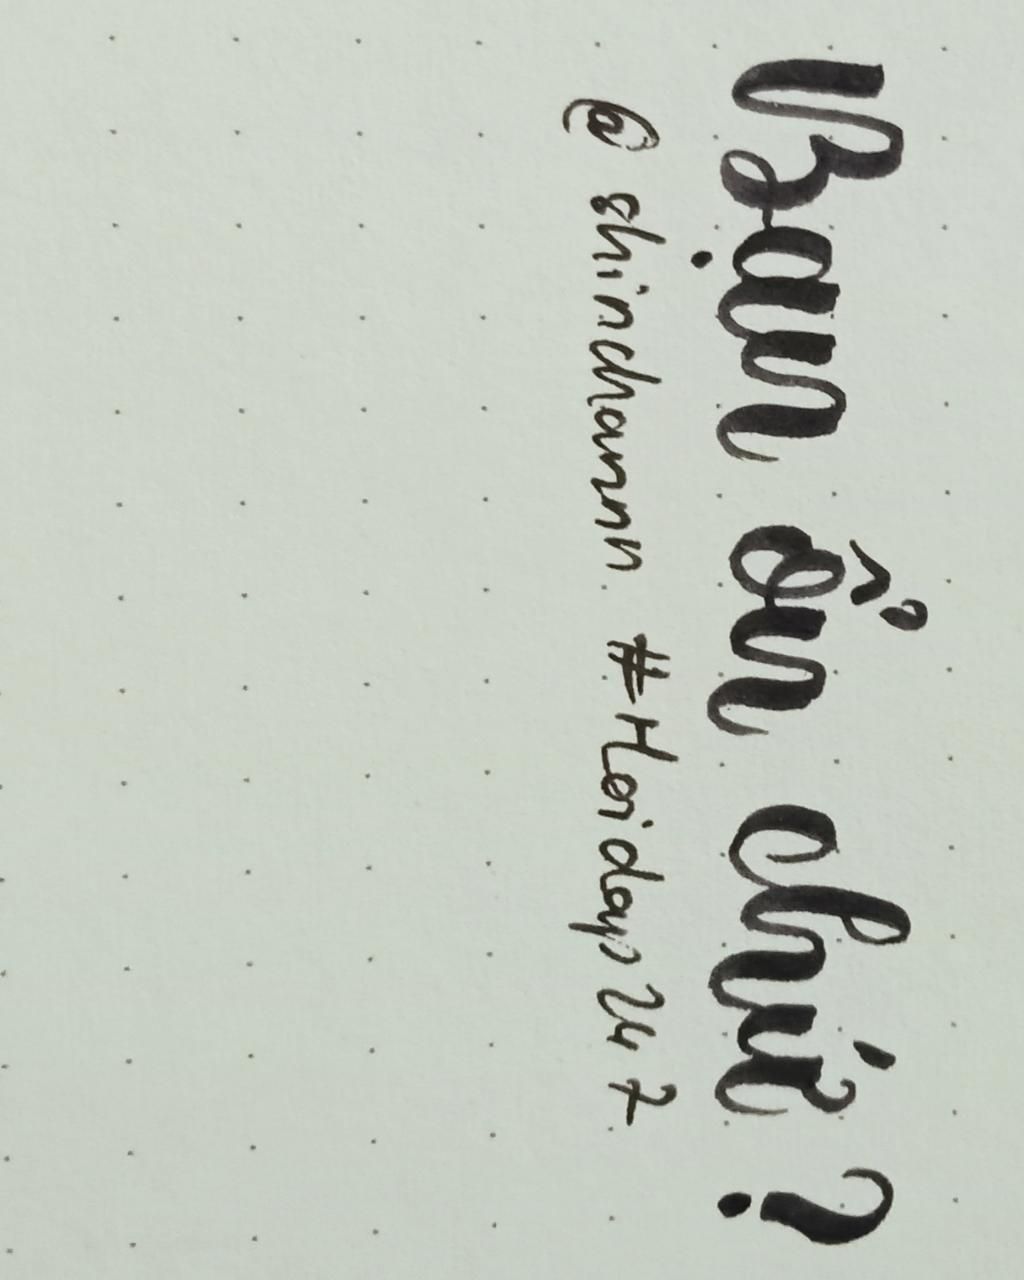 Bạn ổn chứ?
@shinchannn #Hoidap247